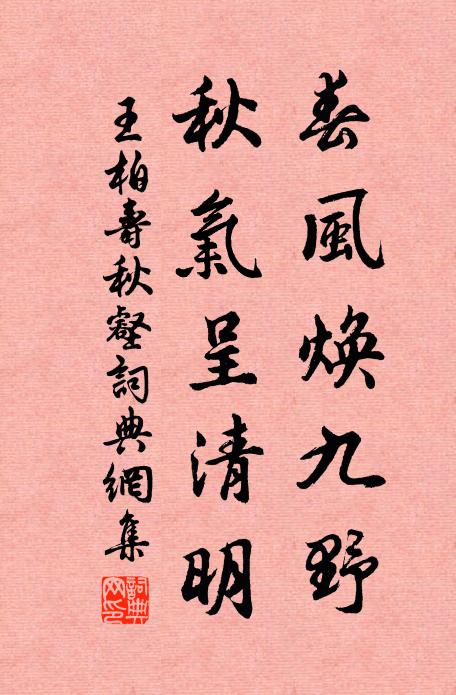 春風煥九野
秋氣呈清明
王柏壽秋壑詞典網集
詞典网印